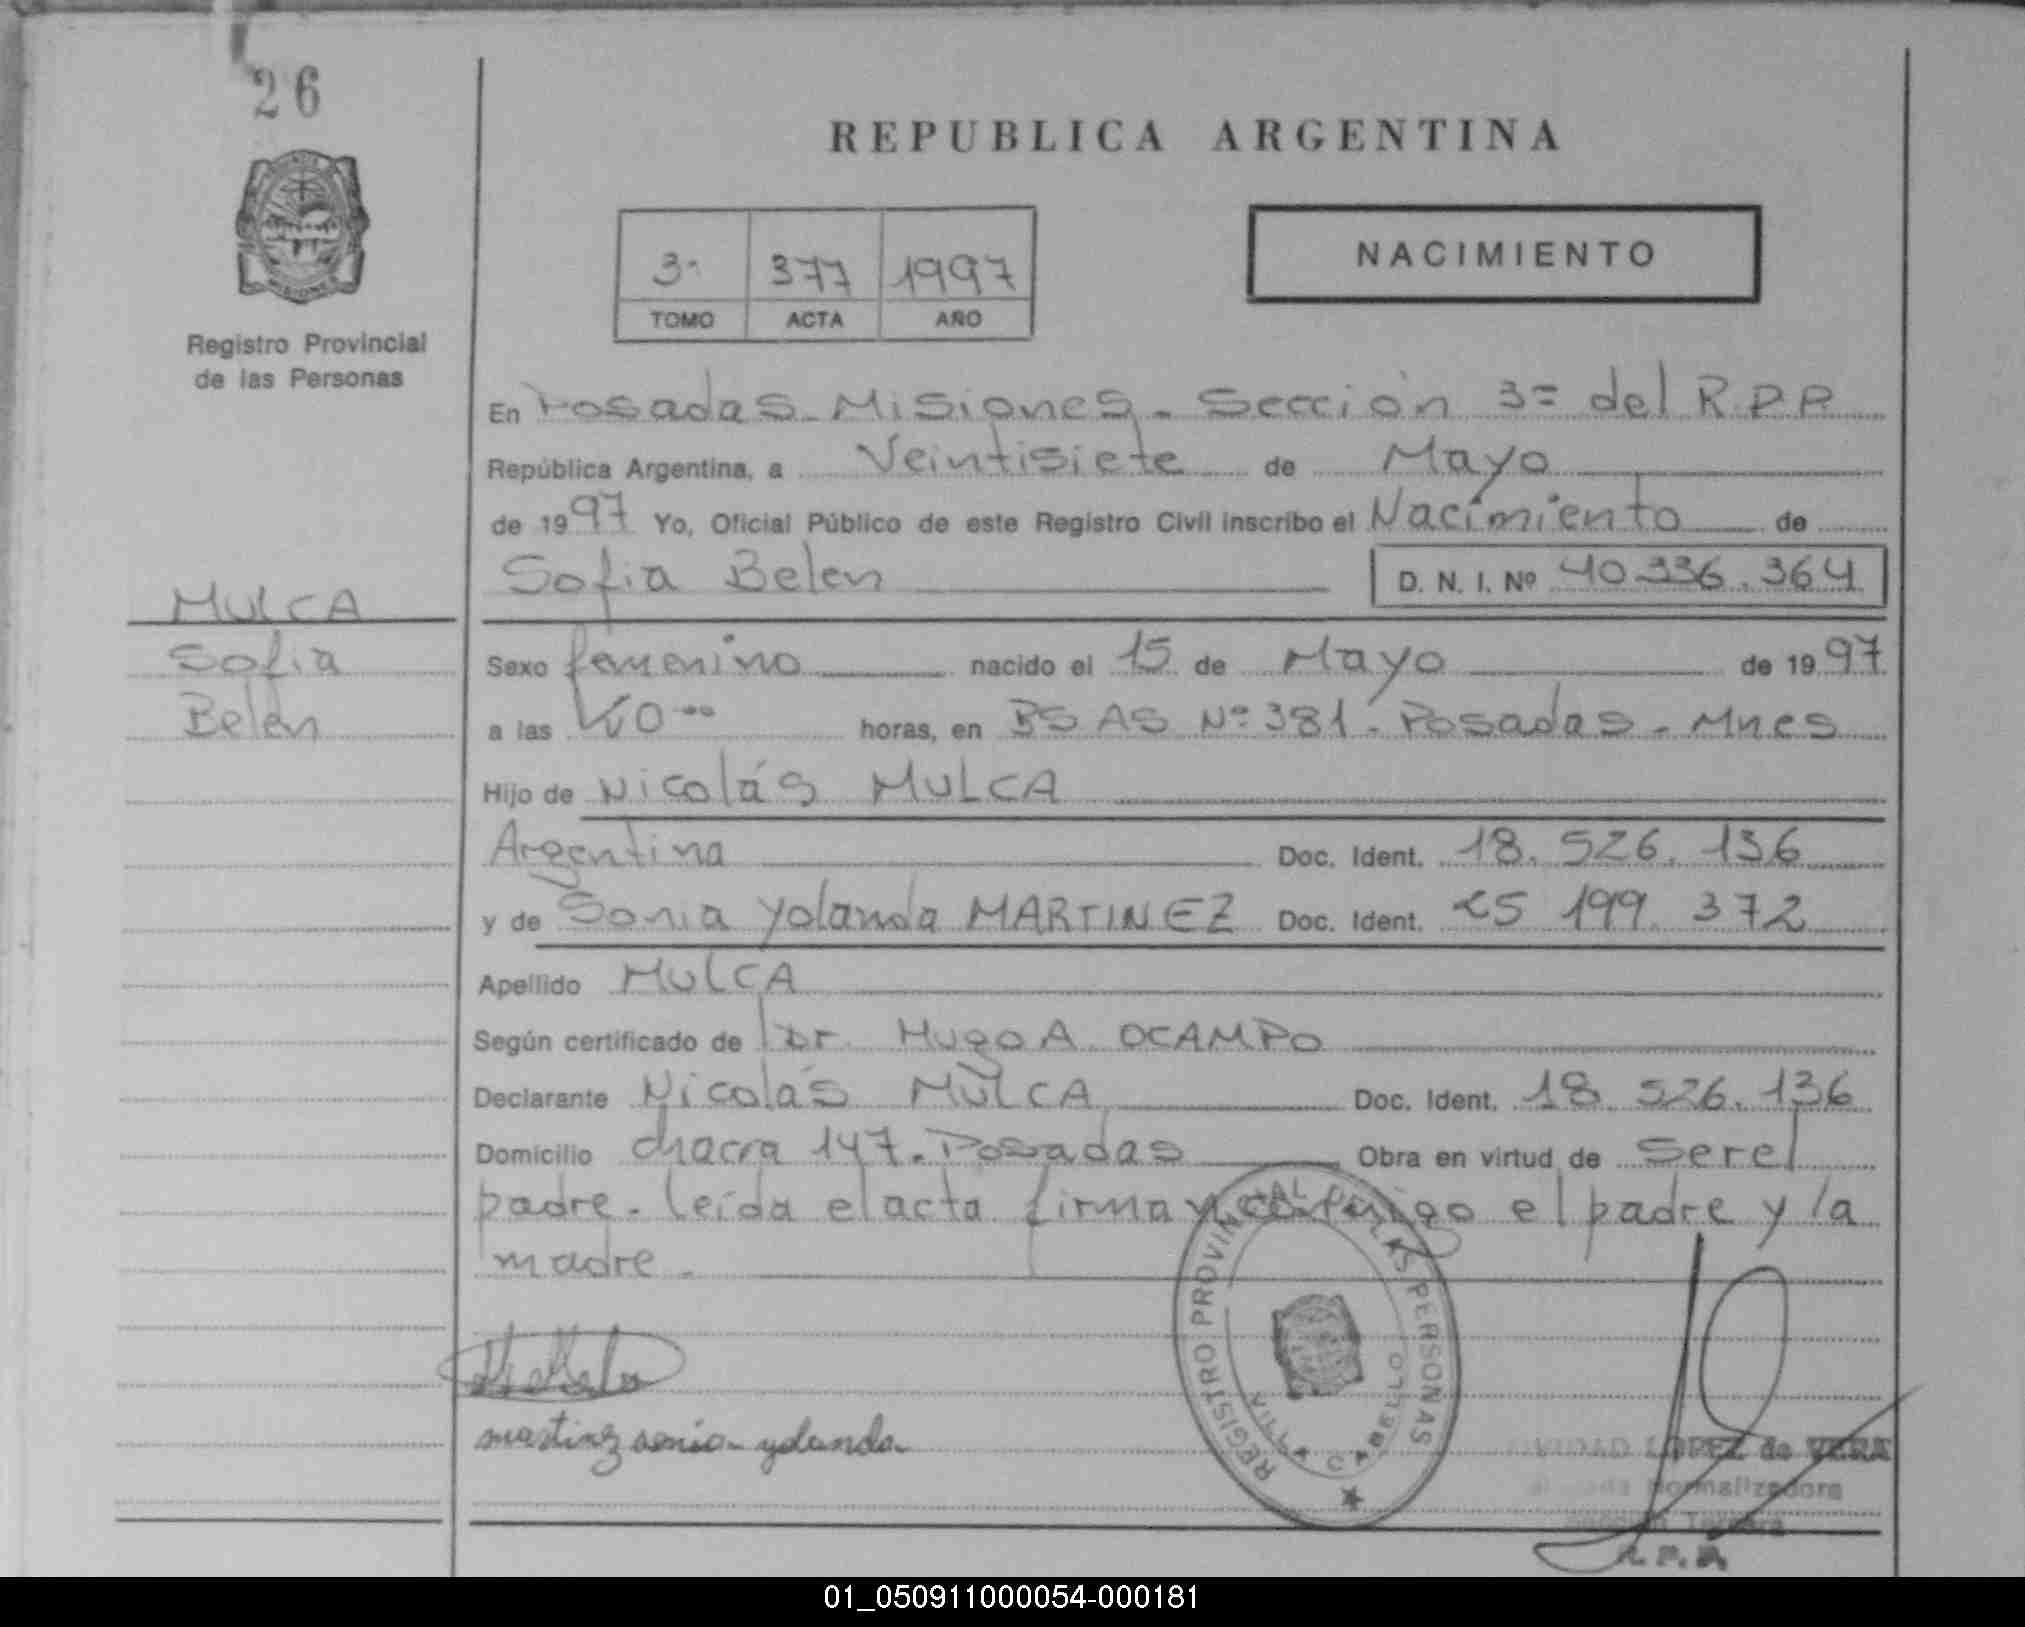 26
REPUBLICA ARGENTINA
Registro Provincial
de las Personas
3ª 377 1997
TOMO ACTA AÑO
NACIMIENTO
En Posadas - Misiones - Sección 3ª del R.P.P.
República Argentina, a Veintisiete de Mayo
de 1997 Yo, Oficial Público de este Registro Civil inscribo el Nacimiento de
Sofia Belen D. N. I. Nº 40.336.364
MULCA
Sofia
Belen
Sexo femenino nacido el 15 de Mayo de 1997
a las horas, en BS AS Nº 381 - Posadas - Mnes
Hijo de Nicolás MULCA
Argentina Doc. Ident. 18.526.136
y de Sonia Yolanda MARTINEZ Doc. Ident. 25 199.372
Apellido MULCA
Según certificado de Dr. Hugo A. OCAMPO
Declarante Nicolás MULCA Doc. Ident. 18.526.136
Domicilio chacra 147 - Posadas Obra en virtud de ser el
padre - leída el acta firman conmigo el padre y la
madre -
martinez sonia yolanda
REGISTRO PROVINCIAL DE LAS PERSONAS
CABELLO
LOPEZ de VERA
Normalizadora
R.P.P.
01_050911000054-000181